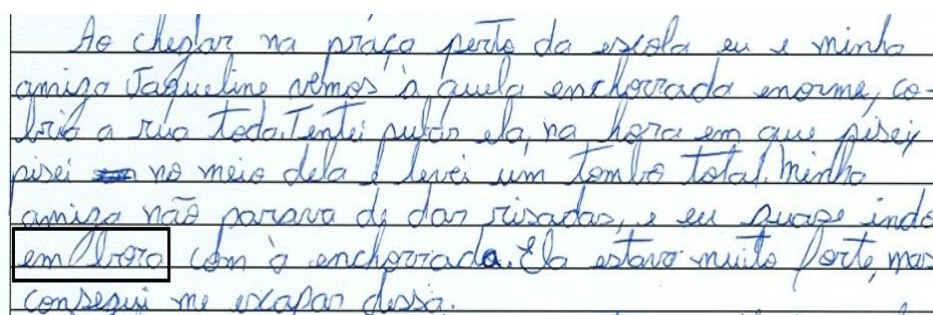 Ao chegar na praça perto da escola eu e minha
amiga Jaqueline vemos à quela enchorrada enorme, co-
briu a rua toda. Tentei pular ela, na hora em que pisei,
pisei no meio dela e levei um tombo total. Minha
amiga não parava de dar risadas, e eu quase indo
em bora com à enchorrada. Ela estava muito forte, mas
consegui me escapar dessa.